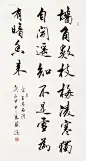 墻角數枝梅凌寒獨
自開遙知不是雪為
有暗香来